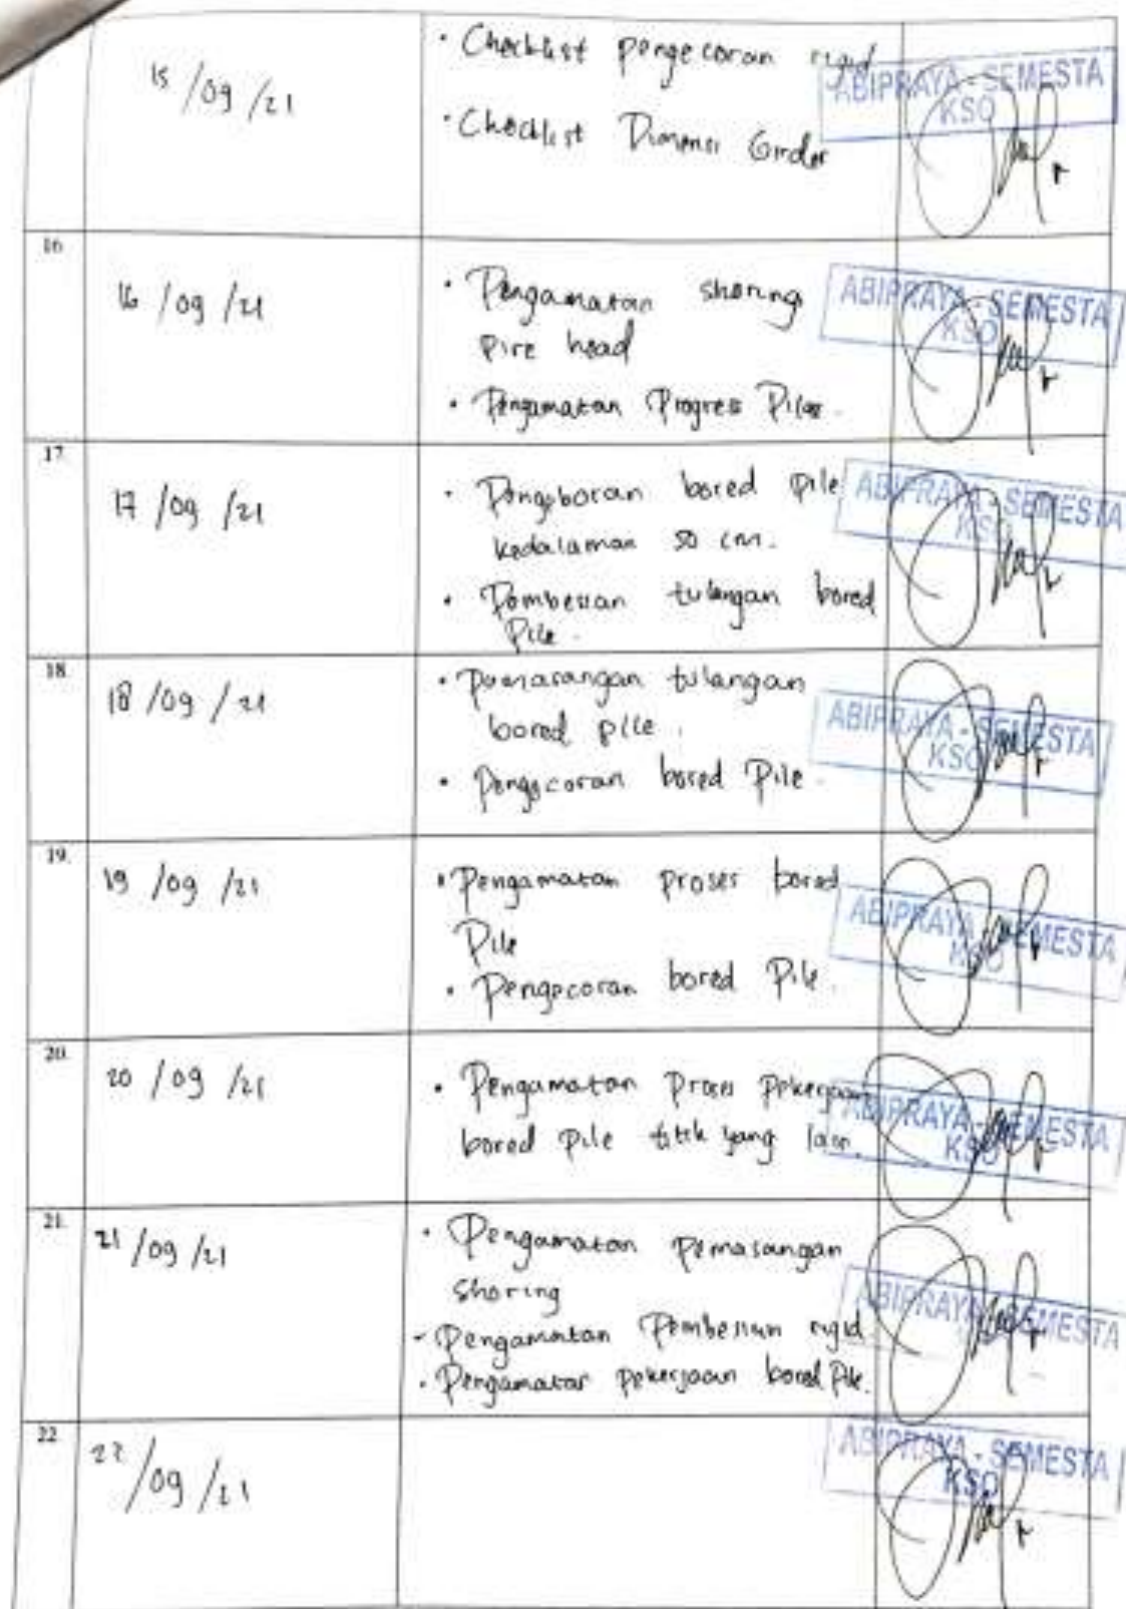 15/09/21
• Checklist pengecoran rigid
• Checklist Dimensi Girder
ABIPRAYA - SEMESTA
KSO
16.
16/09/21
• Pengamatan shoring
pire head
• Pengamatan Progres Pilar.
ABIPRAYA - SEMESTA
KSO
17.
17/09/21
• Pengeboran bored pile
kedalaman 50 cm.
• Pembesian tulangan bored
Pile.
ABIPRAYA - SEMESTA
KSO
18.
18/09/21
• Pemasangan tulangan
bored pile.
• Pengecoran bored Pile.
ABIPRAYA - SEMESTA
KSO
19.
19/09/21
• Pengamatan proses bored
Pile
• Pengecoran bored Pile.
ABIPRAYA - SEMESTA
KSO
20.
20/09/21
• Pengamatan Proses Pekerjaan
bored pile titik yang lain.
ABIPRAYA - SEMESTA
KSO
21.
21/09/21
• Pengamatan Pemasangan
shoring
- Pengamatan Pembesian rigid
• Pengamatan pekerjaan bored Pile.
ABIPRAYA - SEMESTA
22.
22/09/21
ABIPRAYA - SEMESTA
KSO